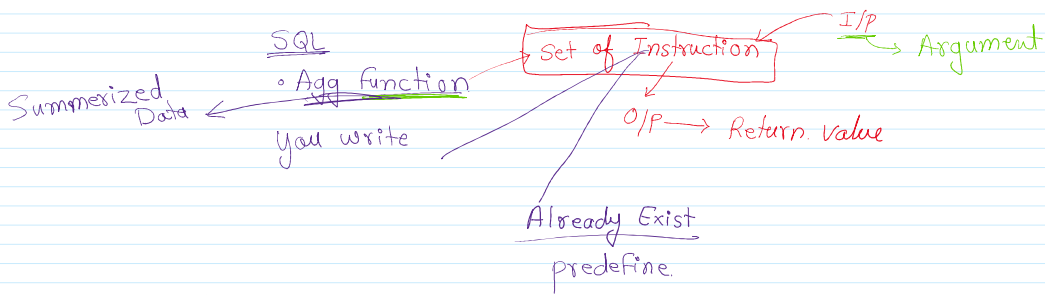 SQL
• Agg function
Summerized
Data
You write
Set of Instruction
I/P
Argument
O/P → Return value
Already Exist
predefine.